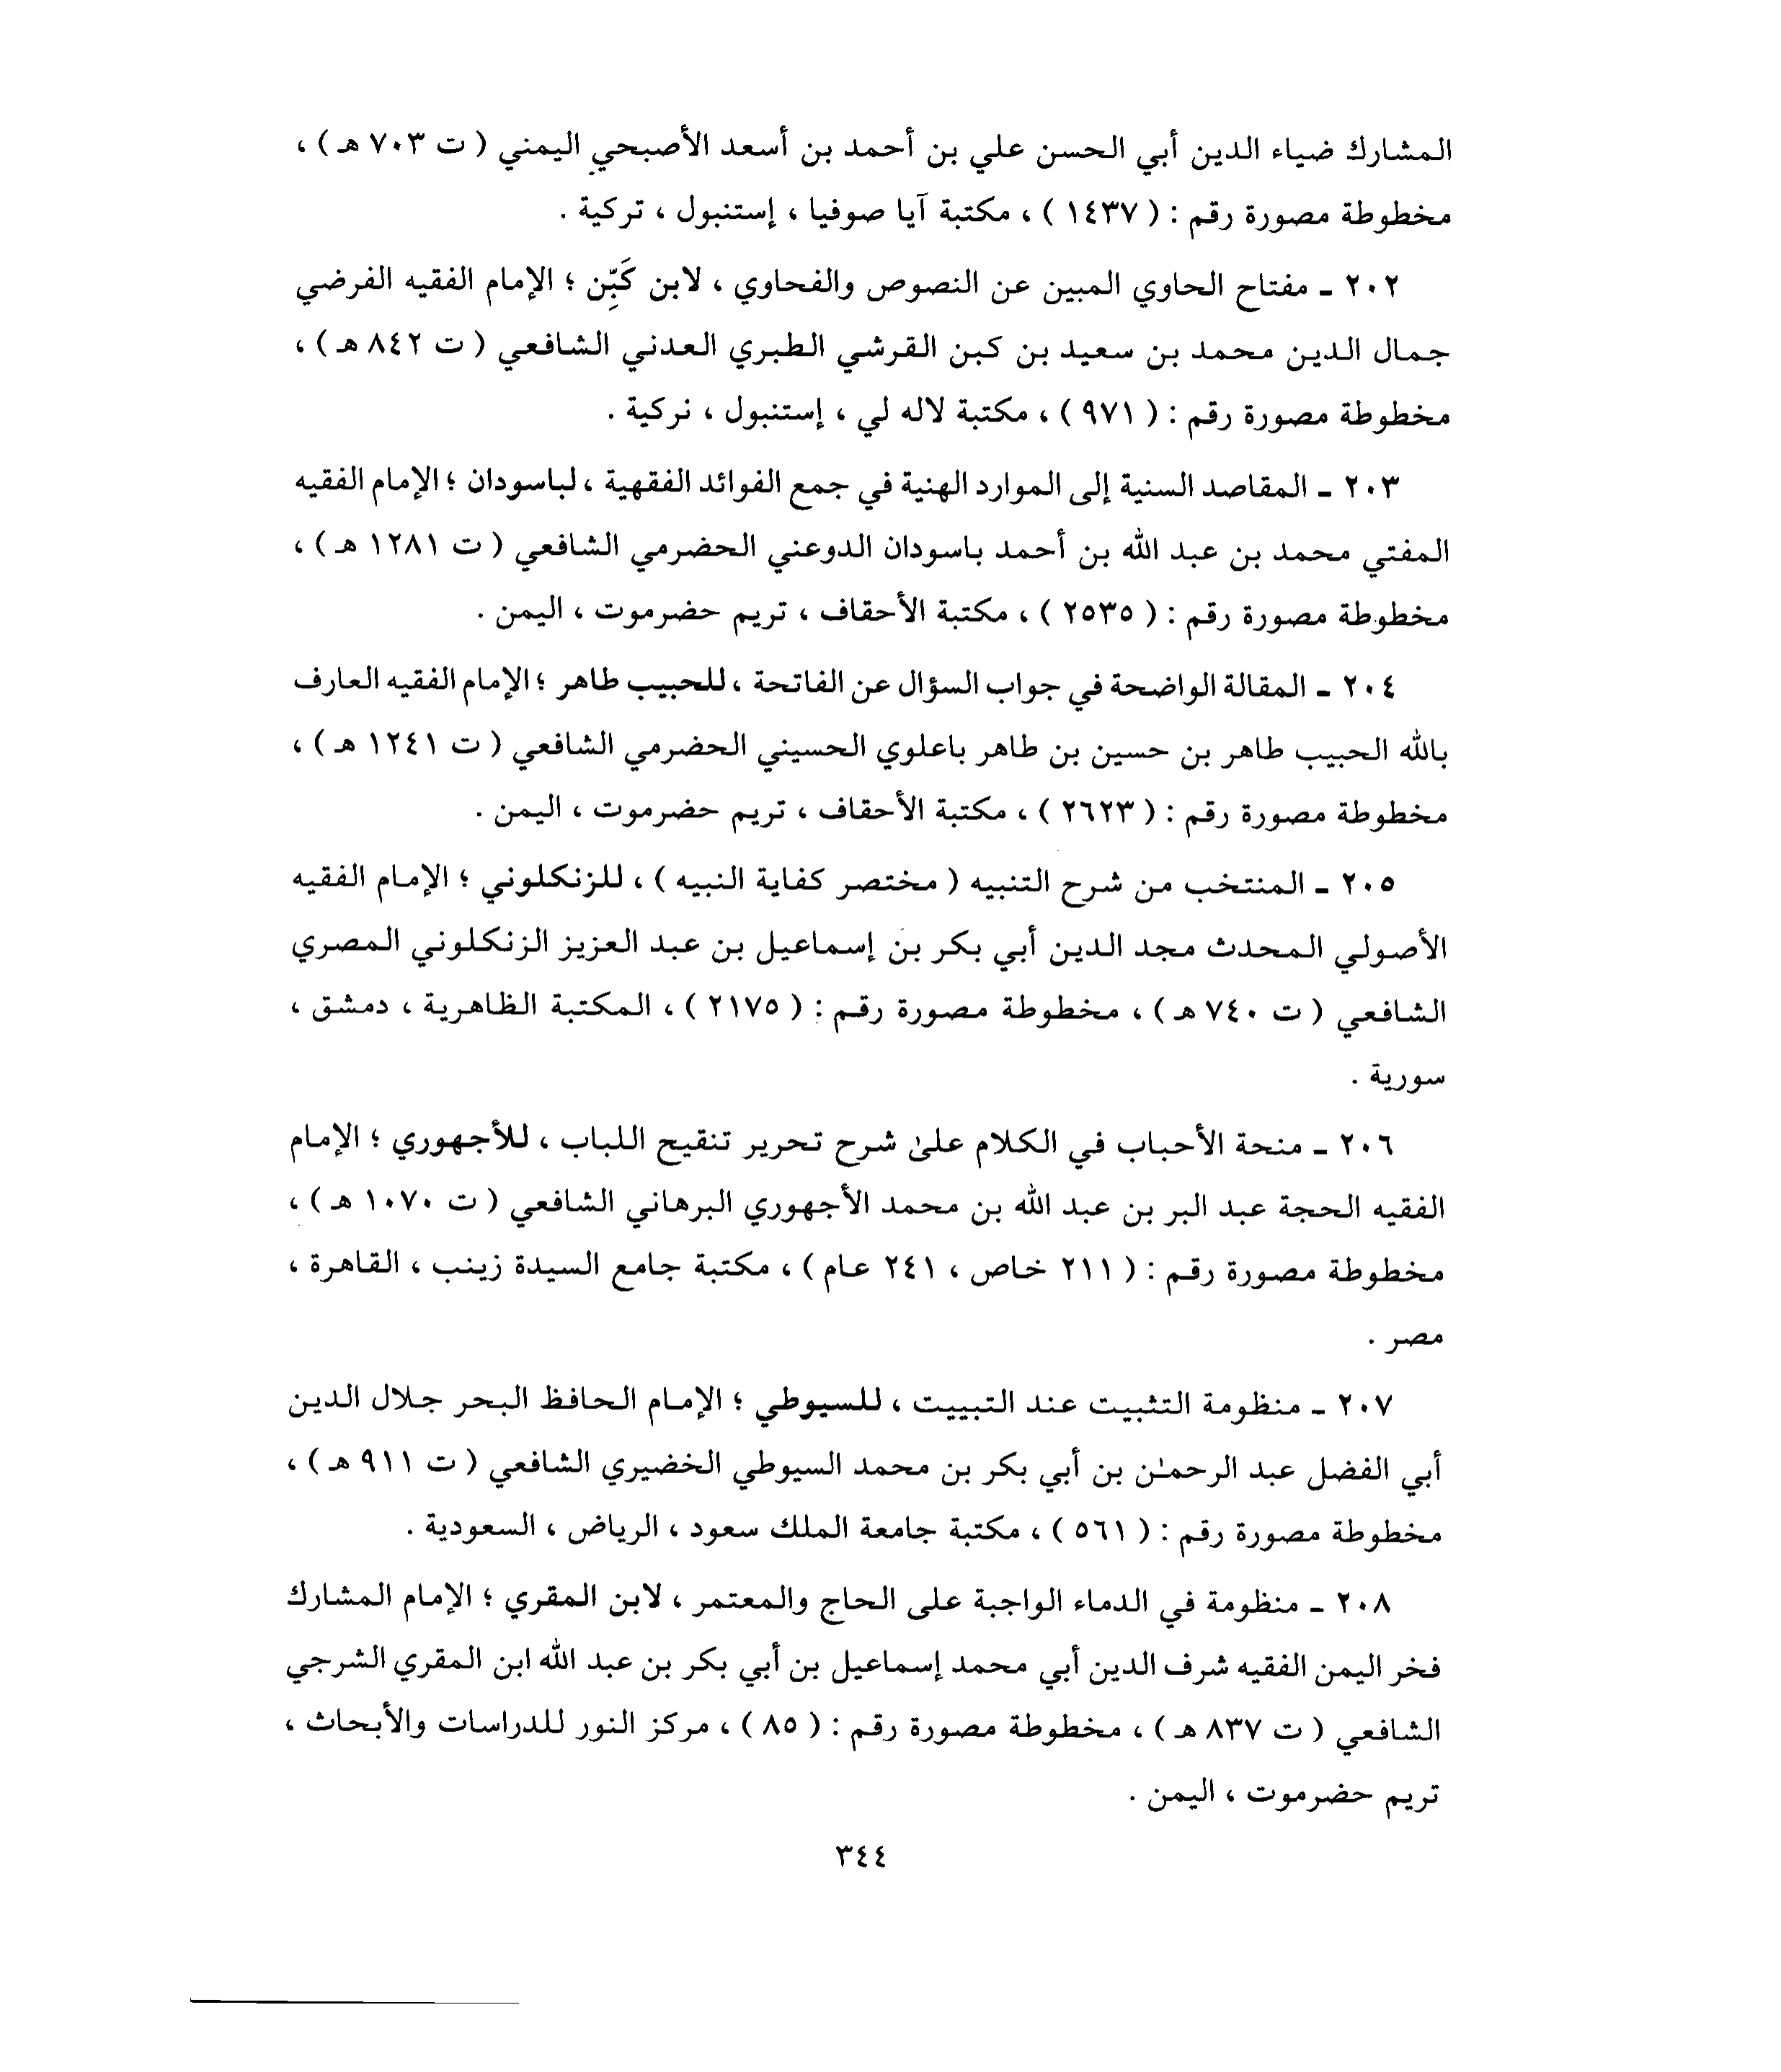 المشارك ضياء الدين أبي الحسن علي بن أحمد بن أسعد الأصبحي اليمني ( ت ٧٠٣ هـ ) ،
مخطوطة مصورة رقم : ( ١٤٣٧ ) ، مكتبة آيا صوفيا ، إستنبول ، تركية .
٢٠٢ ـ مفتاح الحاوي المبين عن النصوص والفحاوي ، لابن كَبِّن ؛ الإمام الفقيه الفرضي
جمال الدين محمد بن سعيد بن كبن القرشي الطبري العدني الشافعي ( ت ٨٤٢ هـ ) ،
مخطوطة مصورة رقم : ( ٩٧١ ) ، مكتبة لاله لي ، إستنبول ، نركية .
٢٠٣ ـ المقاصد السنية إلى الموارد الهنية في جمع الفوائد الفقهية ، لباسودان ؛ الإمام الفقيه
المفتي محمد بن عبد الله بن أحمد باسودان الدوعني الحضرمي الشافعي ( ت ١٢٨١ هـ ) ،
مخطوطة مصورة رقم : ( ٢٥٣٥ ) ، مكتبة الأحقاف ، تريم حضرموت ، اليمن .
٢٠٤ ـ المقالة الواضحة في جواب السؤال عن الفاتحة ، للحبيب طاهر ؛ الإمام الفقيه العارف
بالله الحبيب طاهر بن حسين بن طاهر باعلوي الحسيني الحضرمي الشافعي ( ت ١٢٤١ هـ ) ،
مخطوطة مصورة رقم : ( ٢٦٢٣ ) ، مكتبة الأحقاف ، تريم حضرموت ، اليمن .
٢٠٥ ـ المنتخب من شرح التنبيه ( مختصر كفاية النبيه ) ، للزنكلوني ؛ الإمام الفقيه
الأصولي المحدث مجد الدين أبي بكر بن إسماعيل بن عبد العزيز الزنكلوني المصري
الشافعي ( ت ٧٤٠ هـ ) ، مخطوطة مصورة رقم : ( ٢١٧٥ ) ، المكتبة الظاهرية ، دمشق ،
سورية .
٢٠٦ ـ منحة الأحباب في الكلام علىٰ شرح تحرير تنقيح اللباب ، للأجهوري ؛ الإمام
الفقيه الحجة عبد البر بن عبد الله بن محمد الأجهوري البرهاني الشافعي ( ت ١٠٧٠ هـ ) ،
مخطوطة مصورة رقم : ( ٢١١ خاص ، ٢٤١ عام ) ، مكتبة جامع السيدة زينب ، القاهرة ،
مصر .
٢٠٧ ـ منظومة التثبيت عند التبييت ، للسيوطي ؛ الإمام الحافظ البحر جلال الدين
أبي الفضل عبد الرحمـٰن بن أبي بكر بن محمد السيوطي الخضيري الشافعي ( ت ٩١١ هـ ) ،
مخطوطة مصورة رقم : ( ٥٦١ ) ، مكتبة جامعة الملك سعود ، الرياض ، السعودية .
٢٠٨ ـ منظومة في الدماء الواجبة على الحاج والمعتمر ، لابن المقري ؛ الإمام المشارك
فخر اليمن الفقيه شرف الدين أبي محمد إسماعيل بن أبي بكر بن عبد الله ابن المقري الشرجي
الشافعي ( ت ٨٣٧ هـ ) ، مخطوطة مصورة رقم : ( ٨٥ ) ، مركز النور للدراسات والأبحاث ،
تريم حضرموت ، اليمن .
٣٤٤